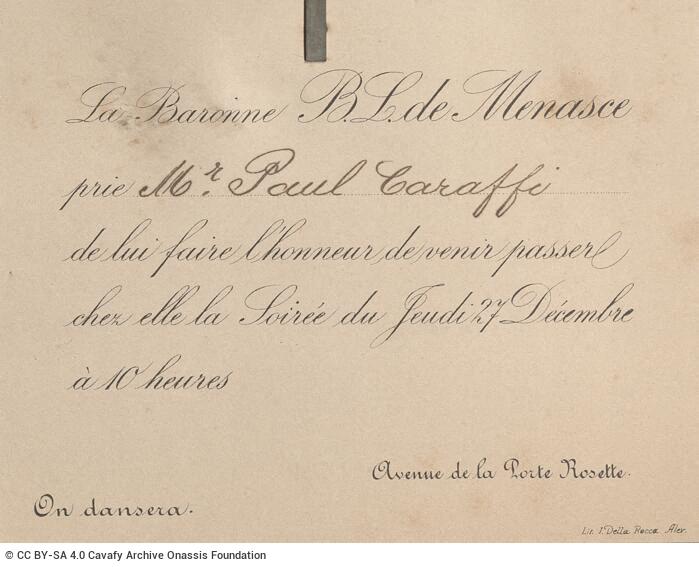 La Baronne B. L. de Menasce
prie Mr. Paul Caraffi
de lui faire l'honneur de venir passer
chez elle la Soirée du Jeudi 27 Décembre
à 10 heures
Avenue de la Porte Rosette.
On dansera.
Lit. I. Della Rocca Alex.
© CC BY-SA 4.0 Cavafy Archive Onassis Foundation